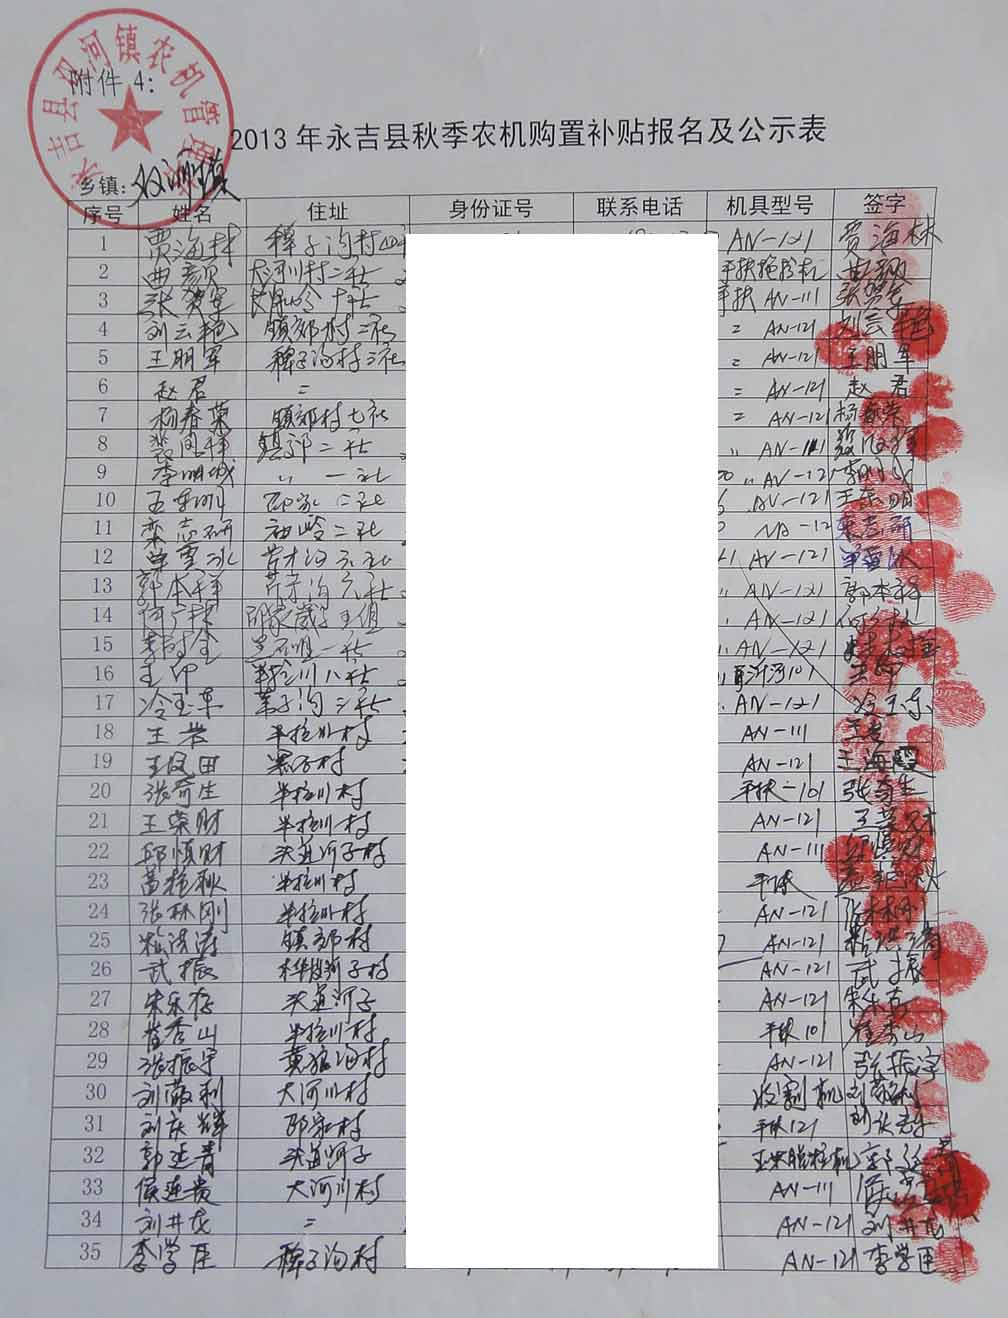 永吉县双河镇农机管理站
附件 4：
2013 年永吉县秋季农机购置补贴报名及公示表
乡镇：双河镇
序号 姓名 住址 身份证号 联系电话 机具型号 签字
1 贾海林 稗子沟村四 AN-121 贾海林
2 曲 大河川村二社
3 张贺军 七社 手扶 AN-111 张贺军
4 刘云艳 镇郊村二社 〃 AN-121 刘云艳
5 王朋军 稗子沟村三社 〃 AN-121 王朋军
6 赵君 〃 〃 AN-121 赵君
7 杨春荣 镇郊村七社 〃 AN-121 杨春荣
8 裴凤祥 镇郊二社 〃 AN-111
9 李明城 〃 一社 〃 AN-121
10 王东明 邵家二社 AN-121 王东明
11 栾志研 岭二社 栾志研
12 单雪冰 六社 AN-121 单雪冰
13 郭本祥 六社 〃 AN-121 郭本祥
14 何广林 AN-121 何广林
15 一社 〃 AN-121
16 王印 半拉川八社 101
17 冷玉东 苇子沟三社 AN-121 冷玉东
18 王岩 半拉川村 AN-111 王岩
19 王凤田 黑石村 AN-121 王海霞
20 张奇生 半拉川村 手扶-101 张奇生
21 王荣财 半拉川村 AN-121 王荣财
22 邱慎财 头道河子村 AN-111 邱慎财
23 苗桂秋 半拉川村 手扶
24 张林刚 半拉川村 AN-121 张林刚
25 镇郊村 AN-121
26 武振 河子村 AN-121 武振
27 朱乐存 头道河子 AN-121
28 崔秀山 半拉川村 手扶 101 崔秀山
29 张振宇 黄狼沟村 AN-121 张振宇
30 刘敬利 大河川村 收割机 刘敬利
31 刘庆辉 邵家村 手扶 121
32 郭延青 头道河子 玉米脱粒机 郭延青
33 侯连贵 大河川村 AN-111
34 刘井龙 〃 AN-121 刘井龙
35 李学臣 稗子沟村 AN-121 李学臣